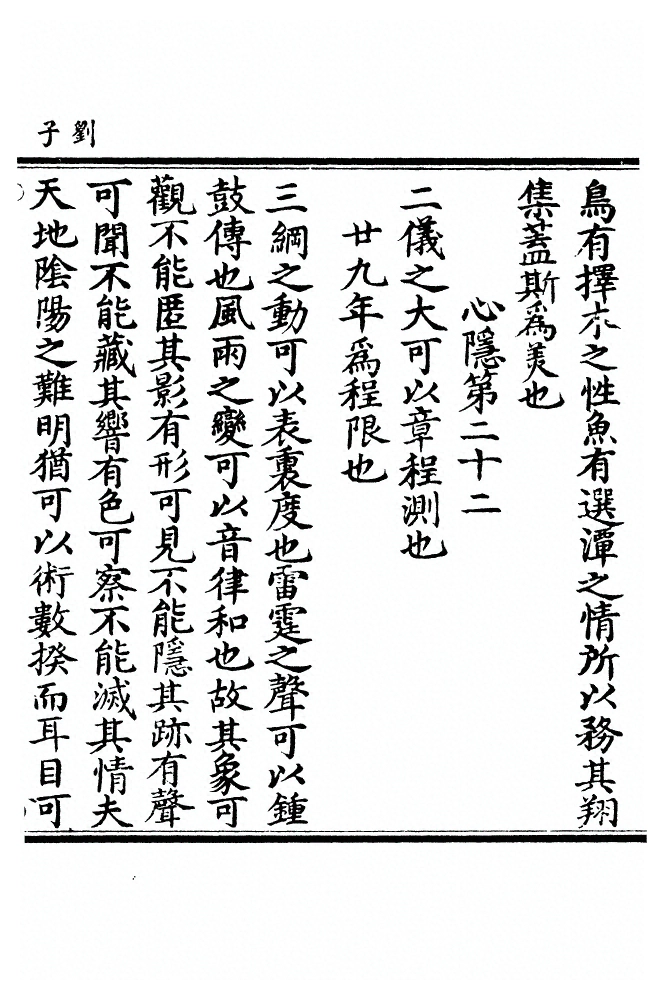 劉子
鳥有擇木之性魚有選潭之情所以務其翔
集蓋斯為美也
心隱第二十二
二儀之大可以章程測也
廿九年為程限也
三綱之動可以表裏度也雷霆之聲可以鍾
鼓傳也風雨之變可以音律和也故其象可
觀不能匿其影有形可見不能隱其跡有聲
可聞不能藏其響有色可察不能滅其情夫
天地陰陽之難明猶可以術數揆而耳目可